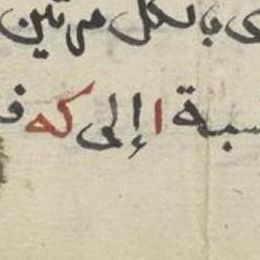 بالكل مرتين
نسبة ا إلى كه